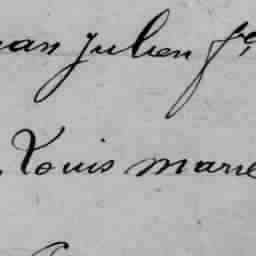 ean Julien
Louis marie